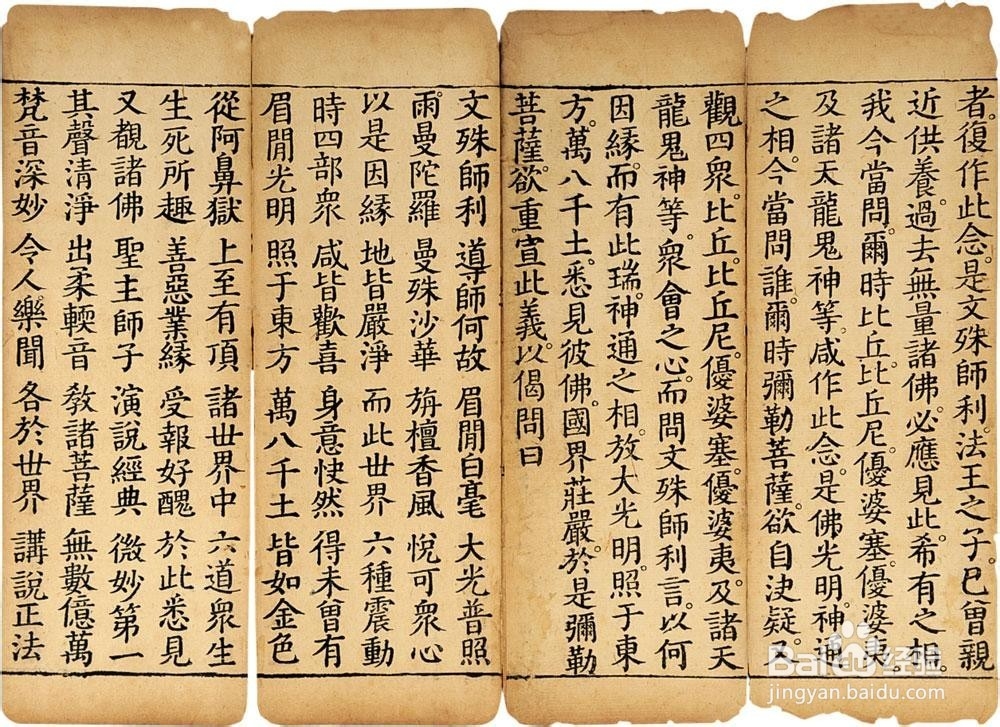 者。復作此念。是文殊師利。法王之子。已曾親
近供養。過去無量諸佛。必應見此。希有之相。
我今當問。爾時比丘。比丘尼。優婆塞。優婆夷。
及諸天龍鬼神等。咸作此念。是佛光明神通
之相。今當問誰。爾時彌勒菩薩。欲自決疑。又
觀四衆。比丘。比丘尼。優婆塞。優婆夷。及諸天
龍鬼神等。衆會之心。而問文殊師利言。以何
因緣。而有此瑞。神通之相。放大光明。照于東
方。萬八千土。悉見彼佛。國界莊嚴。於是彌勒
菩薩。欲重宣此義。以偈問曰
文殊師利 導師何故 眉閒白毫 大光普照
雨曼陀羅 曼殊沙華 旃檀香風 悅可衆心
以是因緣 地皆嚴淨 而此世界 六種震動
時四部衆 咸皆歡喜 身意快然 得未曾有
眉閒光明 照于東方 萬八千土 皆如金色
從阿鼻獄 上至有頂 諸世界中 六道衆生
生死所趣 善惡業緣 受報好醜 於此悉見
又觀諸佛 聖主師子 演說經典 微妙第一
其聲清淨 出柔輭音 敎諸菩薩 無數億萬
梵音深妙 令人樂聞 各於世界 講說正法
Baidu经验
jingyan.baidu.com